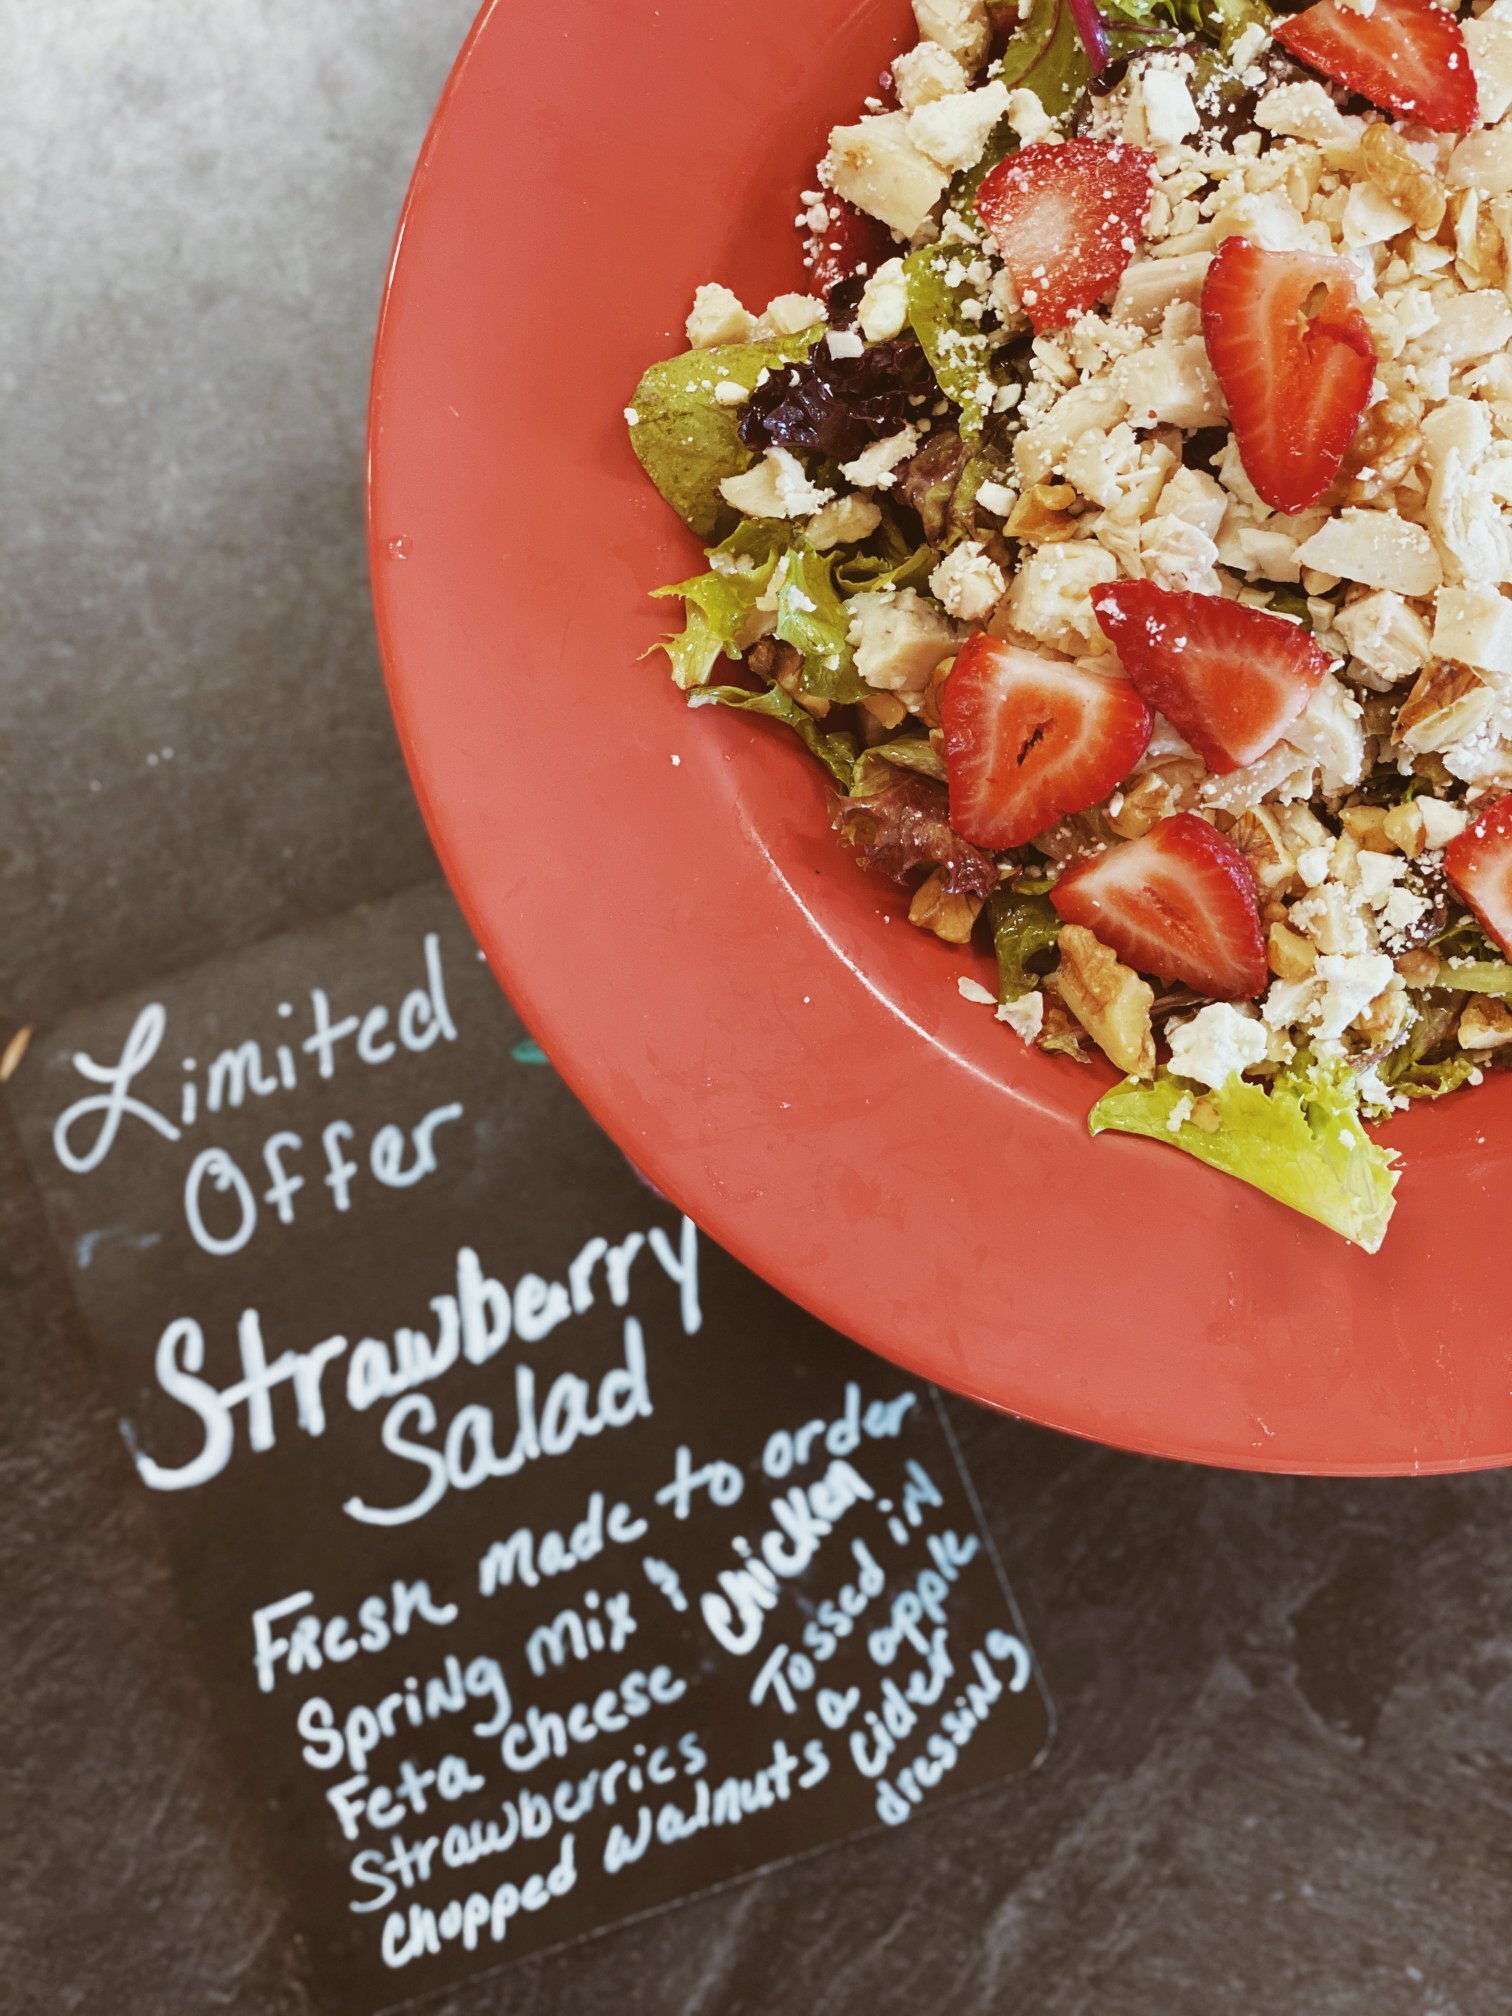 Limited
Offer
Strawberry
Salad
Fresh made to order
Spring mix & chicken
Feta cheese
Strawberries
chopped walnuts
Tossed in
a apple
cider
dressing